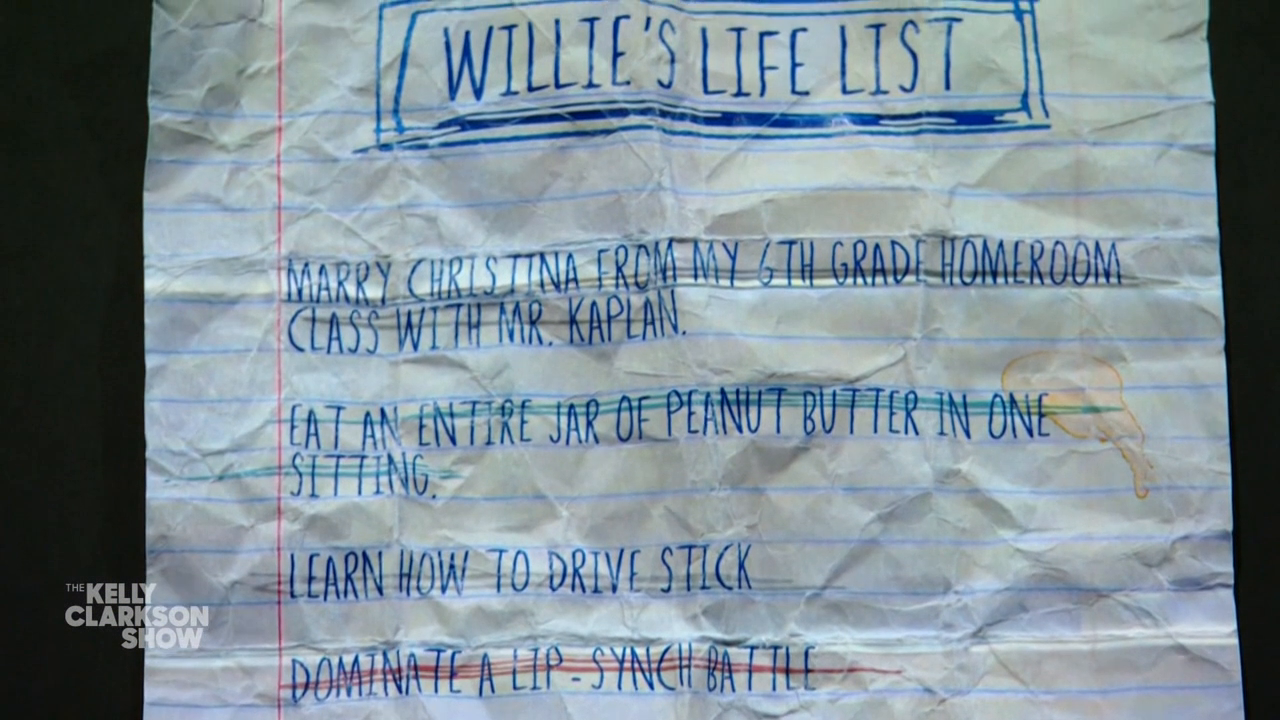 WILLIE'S LIFE LIST
MARRY CHRISTINA FROM MY 6TH GRADE HOMEROOM
CLASS WITH MR. KAPLAN.
EAT AN ENTIRE JAR OF PEANUT BUTTER IN ONE
SITTING.
LEARN HOW TO DRIVE STICK
DOMINATE A LIP-SYNCH BATTLE
THE KELLY
CLARKSON
SHOW